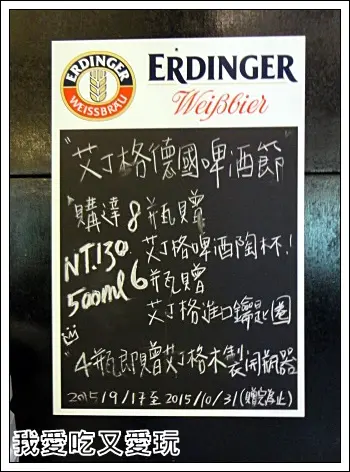 ERDINGER
WEISSBRÄU
ERDINGER
Weißbier
"艾丁格德國啤酒節"
購達8瓶贈
NT.130 艾丁格啤酒陶杯!
500ml 6瓶贈
艾丁格進口鑰匙圈
"4瓶即贈艾丁格木製開瓶器
2015/9/17至2015/10/31(贈完為止)
我愛吃又愛玩